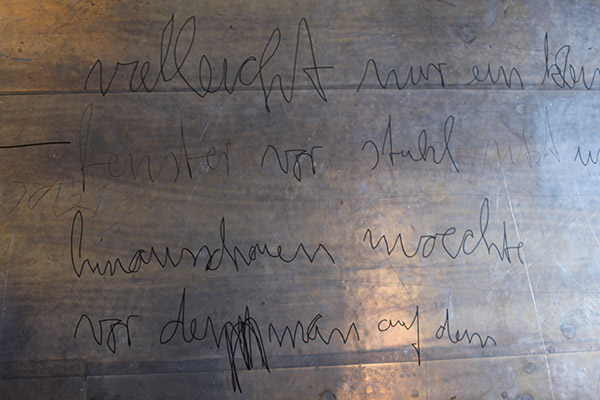 vielleicht nur ein klein
fenster vor stuhl und
hinausschauen moechte
vor dem man auf dem